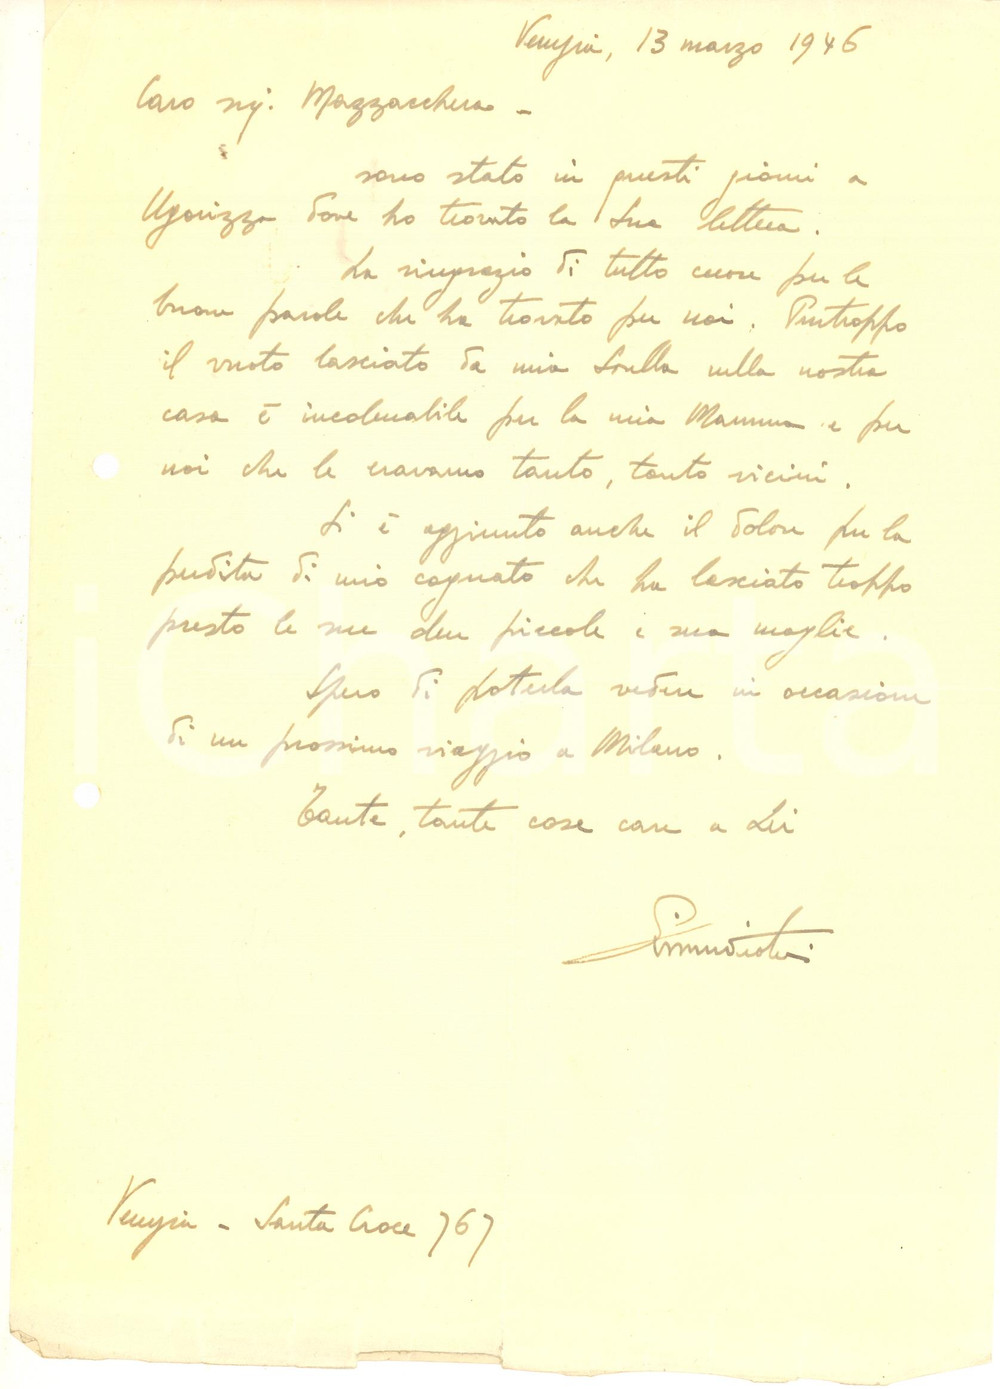 Venezia, 13 marzo 1946
Caro sig. Mazzacchera -
sono stato in questi giorni a
Ugovizza dove ho trovato la Sua lettera.
La ringrazio di tutto cuore per le
buone parole che ha trovato per noi. Purtroppo
il vuoto lasciato da mia Sorella nella nostra
casa è incolmabile per la mia Mamma e per
noi che le eravamo tanto, tanto vicini.
Si è aggiunto anche il dolore per la
perdita di mio cognato che ha lasciato troppo
presto le sue due piccole e sua moglie.
Spero di poterla vedere in occasione
di un prossimo viaggio a Milano.
Tante, tante cose care a Lei
Venezia - Santa Croce 767
iCharta